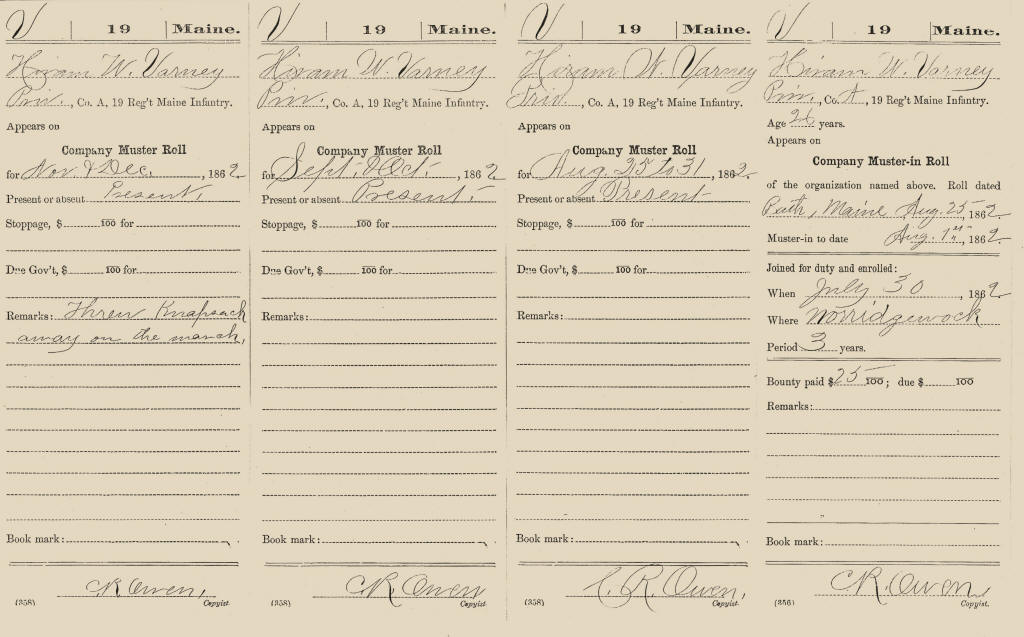 V 19 Maine.
Hiram W. Varney
Priv., Co. A, 19 Reg't Maine Infantry.
Appears on
Company Muster Roll
for Nov. & Dec., 1862.
Present or absent Present.
Stoppage, $ 100 for
Due Gov't, $ 100 for
Remarks: Threw Knapsack
away on the march.
Book mark:
CR Owen,
(358) Copyist.
V 19 Maine.
Hiram W. Varney
Priv., Co. A, 19 Reg't Maine Infantry.
Appears on
Company Muster Roll
for Sept. & Oct., 1862.
Present or absent Present.
Stoppage, $ 100 for
Due Gov't, $ 100 for
Remarks:
Book mark:
CR. Owen
(358) Copyist.
V 19 Maine.
Hiram W. Varney
Priv., Co. A, 19 Reg't Maine Infantry.
Appears on
Company Muster Roll
for Aug. 25 to 31, 1862.
Present or absent Present
Stoppage, $ 100 for
Due Gov't, $ 100 for
Remarks:
Book mark:
C. R. Owen,
(358) Copyist.
V 19 Maine.
Hiram W. Varney
Priv., Co. A, 19 Reg't Maine Infantry.
Age 26 years.
Appears on
Company Muster-in Roll
of the organization named above. Roll dated
Maine Aug. 25, 1862.
Muster-in to date Aug. 1862.
Joined for duty and enrolled:
When July 30, 1862.
Where Norridgewock
Period 3 years.
Bounty paid $25 100; due $ 100
Remarks:
Book mark:
CR. Owen
(356) Copyist.